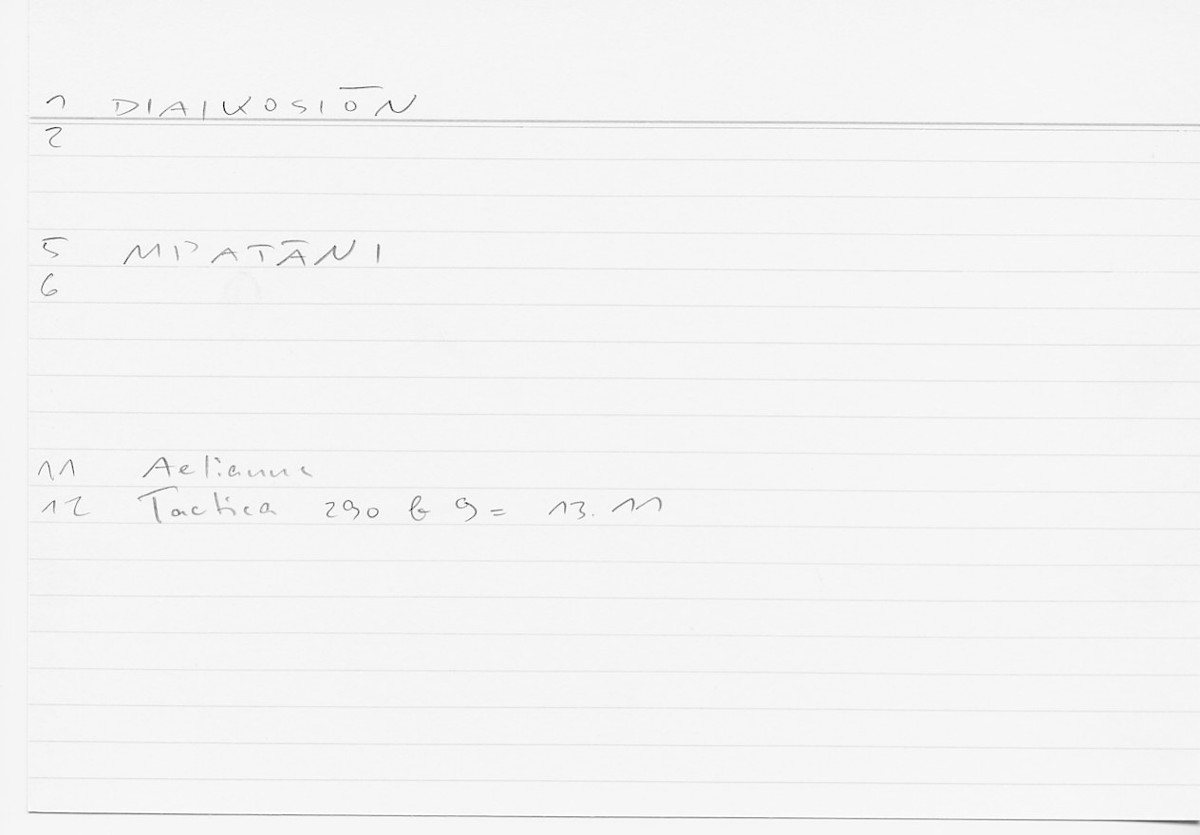 1 DIAIKOSIŌN
2
5 MPATĀNI
6
11 Aelianus
12 Tactica 290 b 9 = 13.11